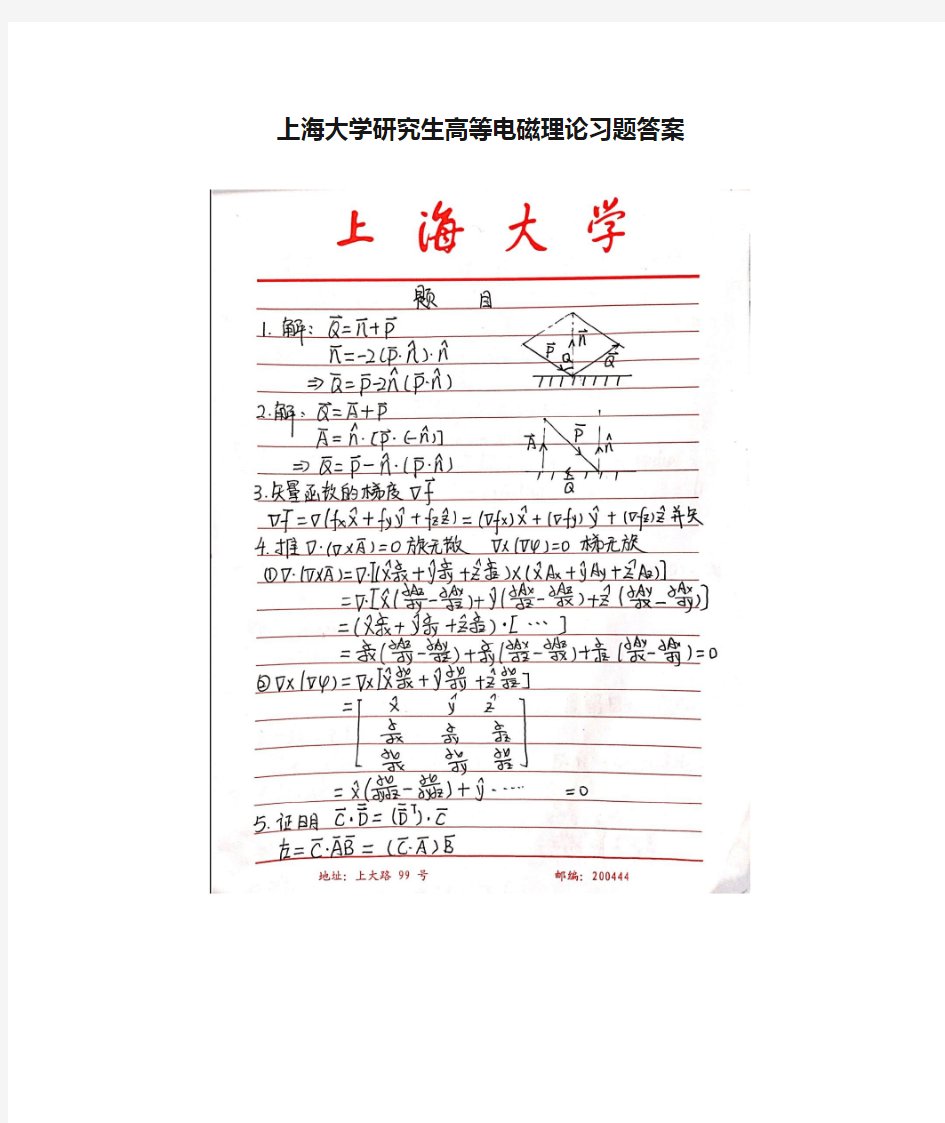 上海大学研究生高等电磁理论习题答案
上海大学
题 目
1. 解: Q̄=n̄+P̄
n̄=-2(P̄·n̂)·n̂
⇒Q̄=P̄-2n̂(P̄·n̂)
P̄ n̄ Q Q̄
2.解: Q̄=Ā+P̄
Ā=n̂·[P̄·(-n̂)]
⇒Q̄=P̄-n̂·(P̄·n̂)
Ā P̄ n̂
Q̄
3.矢量函数的梯度 ∇f̄
∇f̄=∇(fxx̂+fyŷ+fzẑ)=(∇fx)x̂+(∇fy)ŷ+(∇fz)ẑ 并矢
4.推∇·(∇×Ā)=0 旋无散 ∇×(∇φ)=0 梯无旋
①∇·(∇×Ā)=∇·[(x̂∂/∂x+ŷ∂/∂y+ẑ∂/∂z)×(x̂Ax+ŷAy+ẑAz)]
=∇·[x̂(∂Az/∂y-∂Ay/∂z)+ŷ(∂Ax/∂z-∂Az/∂x)+ẑ(∂Ay/∂x-∂Ax/∂y)]
=(x̂∂/∂x+ŷ∂/∂y+ẑ∂/∂z)·[ ⋯ ]
=∂/∂x(∂Az/∂y-∂Ay/∂z)+∂/∂y(∂Ax/∂z-∂Az/∂x)+∂/∂z(∂Ay/∂x-∂Ax/∂y)=0
②∇×(∇φ)=∇×[x̂∂φ/∂x+ŷ∂φ/∂y+ẑ∂φ/∂z]
=[ x̂ ŷ ẑ
∂/∂x ∂/∂y ∂/∂z
∂φ/∂x ∂φ/∂y ∂φ/∂z ]
=x̂(∂φ/∂y∂z-∂φ/∂y∂z)+ŷ⋯⋯ =0
5.证明 C̄·D̿=(D̿ᵀ)·C̄
左=C̄·ĀB̄=(C̄·Ā)B̄
地址: 上大路 99 号 邮编: 200444